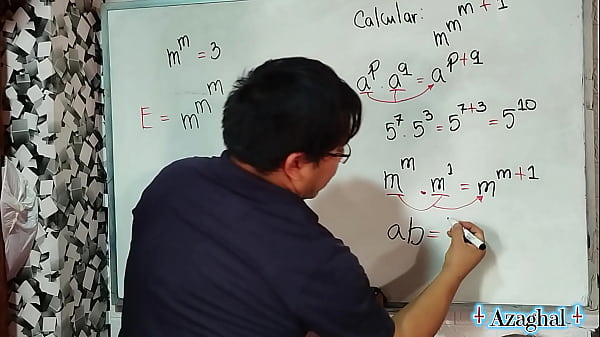 Calcular: m^m^m+1
m^m = 3
a^p · a^q = a^p+q
E = m^m^m
5^7 · 5^3 = 5^7+3 = 5^10
m^m · m^1 = m^m+1
ab =
Azaghal